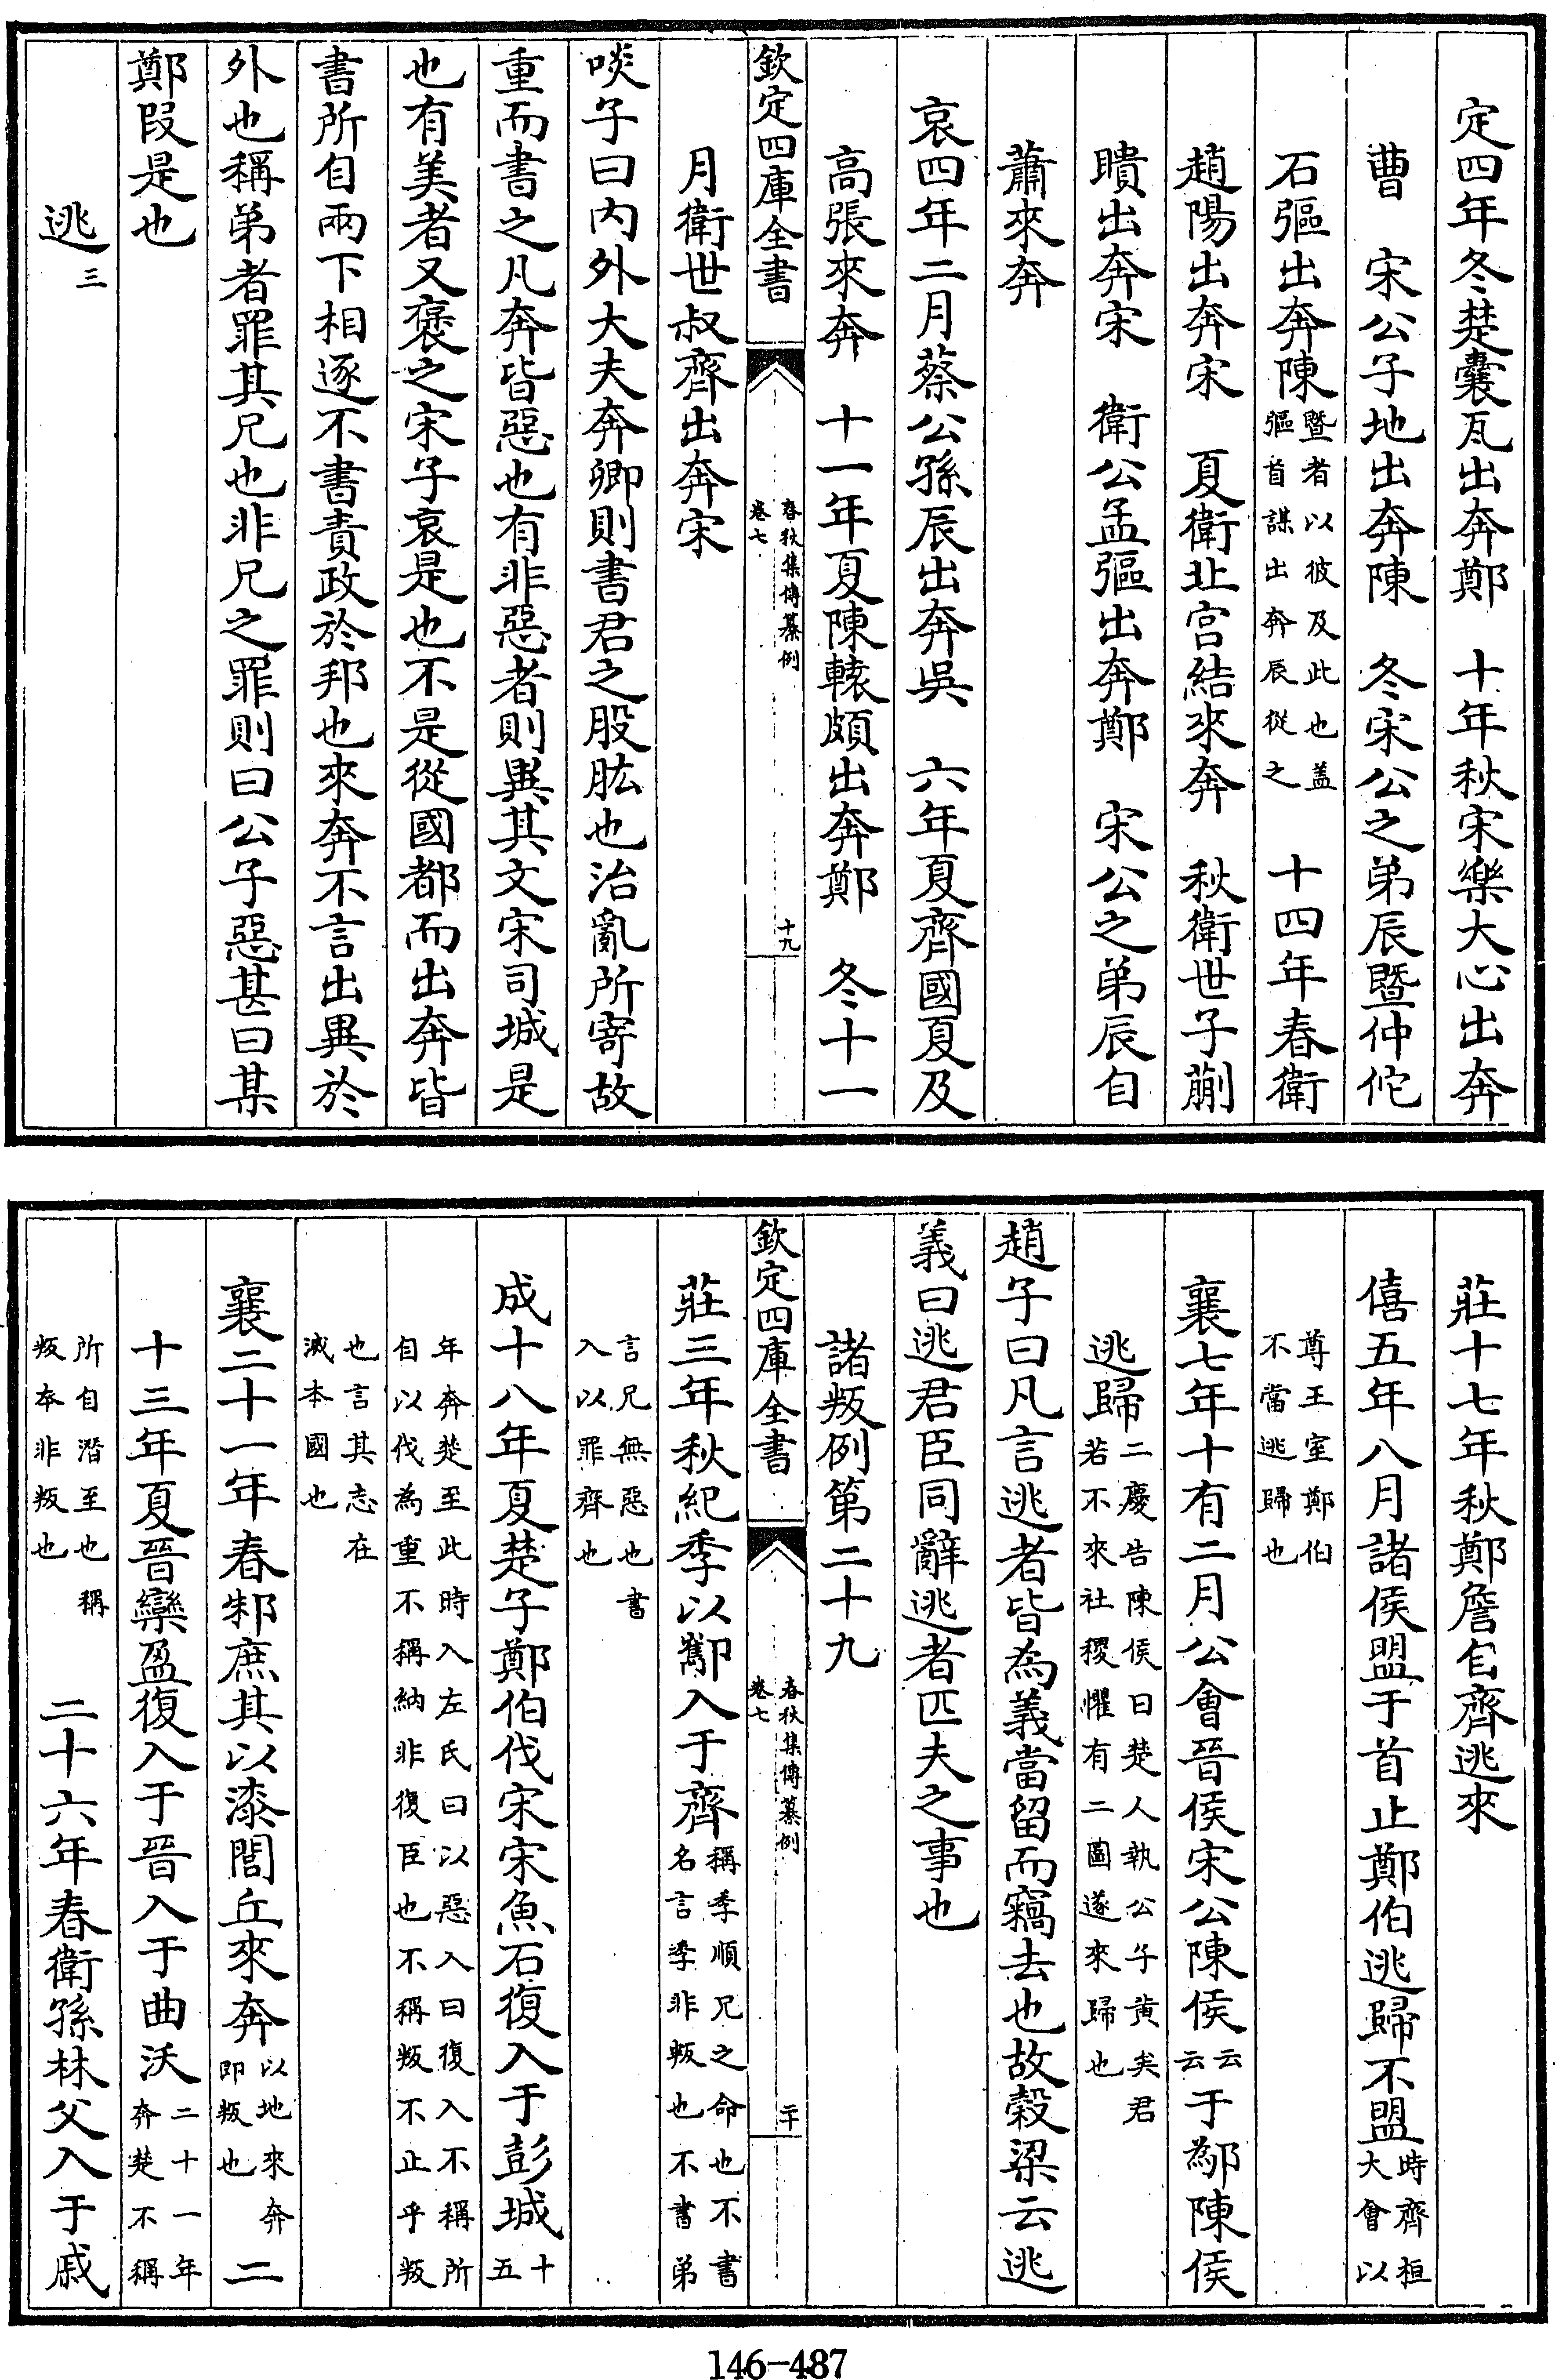 定四年冬楚囊瓦出奔鄭　十年秋宋樂大心出奔
曹　宋公子地出奔陳　冬宋公之弟辰暨仲佗
石彄出奔陳暨者以彼及此也盖彄首謀出奔辰從之　十四年春衛
趙陽出奔宋　夏衛北宮結來奔　秋衛世子蒯
聵出奔宋　衛公孟彄出奔鄭　宋公之弟辰自
蕭來奔
哀四年二月蔡公孫辰出奔吳　六年夏齊國夏及
高張來奔　十一年夏陳轅頗出奔鄭　冬十一
欽定四庫全書　春秋集傳纂例　卷七　十九
月衛世叔齊出奔宋
啖子曰内外大夫奔卿則書君之股肱也治亂所寄故
重而書之凡奔皆惡也有非惡者則異其文宋司城是
也有美者又褒之宋子哀是也不是從國都而出奔皆
書所自兩下相逐不書責政於邦也來奔不言出異於
外也稱弟者罪其兄也非兄之罪則曰公子惡甚曰某
鄭段是也
逃三
莊十七年秋鄭詹自齊逃來
僖五年八月諸侯盟于首止鄭伯逃歸不盟時齊桓大會以
尊王室鄭伯不當逃歸也
襄七年十有二月公會晉侯宋公陳侯云云于鄬陳侯
逃歸二慶告陳侯曰楚人執公子黃矣君若不來社稷懼有二圖遂來歸也
趙子曰凡言逃者皆為義當留而竊去也故榖梁云逃
義曰逃君臣同辭逃者匹夫之事也
諸叛例第二十九
欽定四庫全書　春秋集傳纂例　卷七　二十
莊三年秋紀季以酅入于齊稱季順兄之命也不書名言季非叛也不書弟
言兄無惡也書入以罪齊也
成十八年夏楚子鄭伯伐宋宋魚石復入于彭城十五
年奔楚至此時入左氏曰以惡入曰復入不稱所自以伐為重不稱納非復臣也不稱叛不止乎叛
也言其志在滅本國也
襄二十一年春邾庶其以漆閭丘來奔以地來奔即叛也　二
十三年夏晉欒盈復入于晉入于曲沃二十一年奔楚不稱
所自潛至也稱叛本非叛也　二十六年春衛孫林父入于戚
146-487